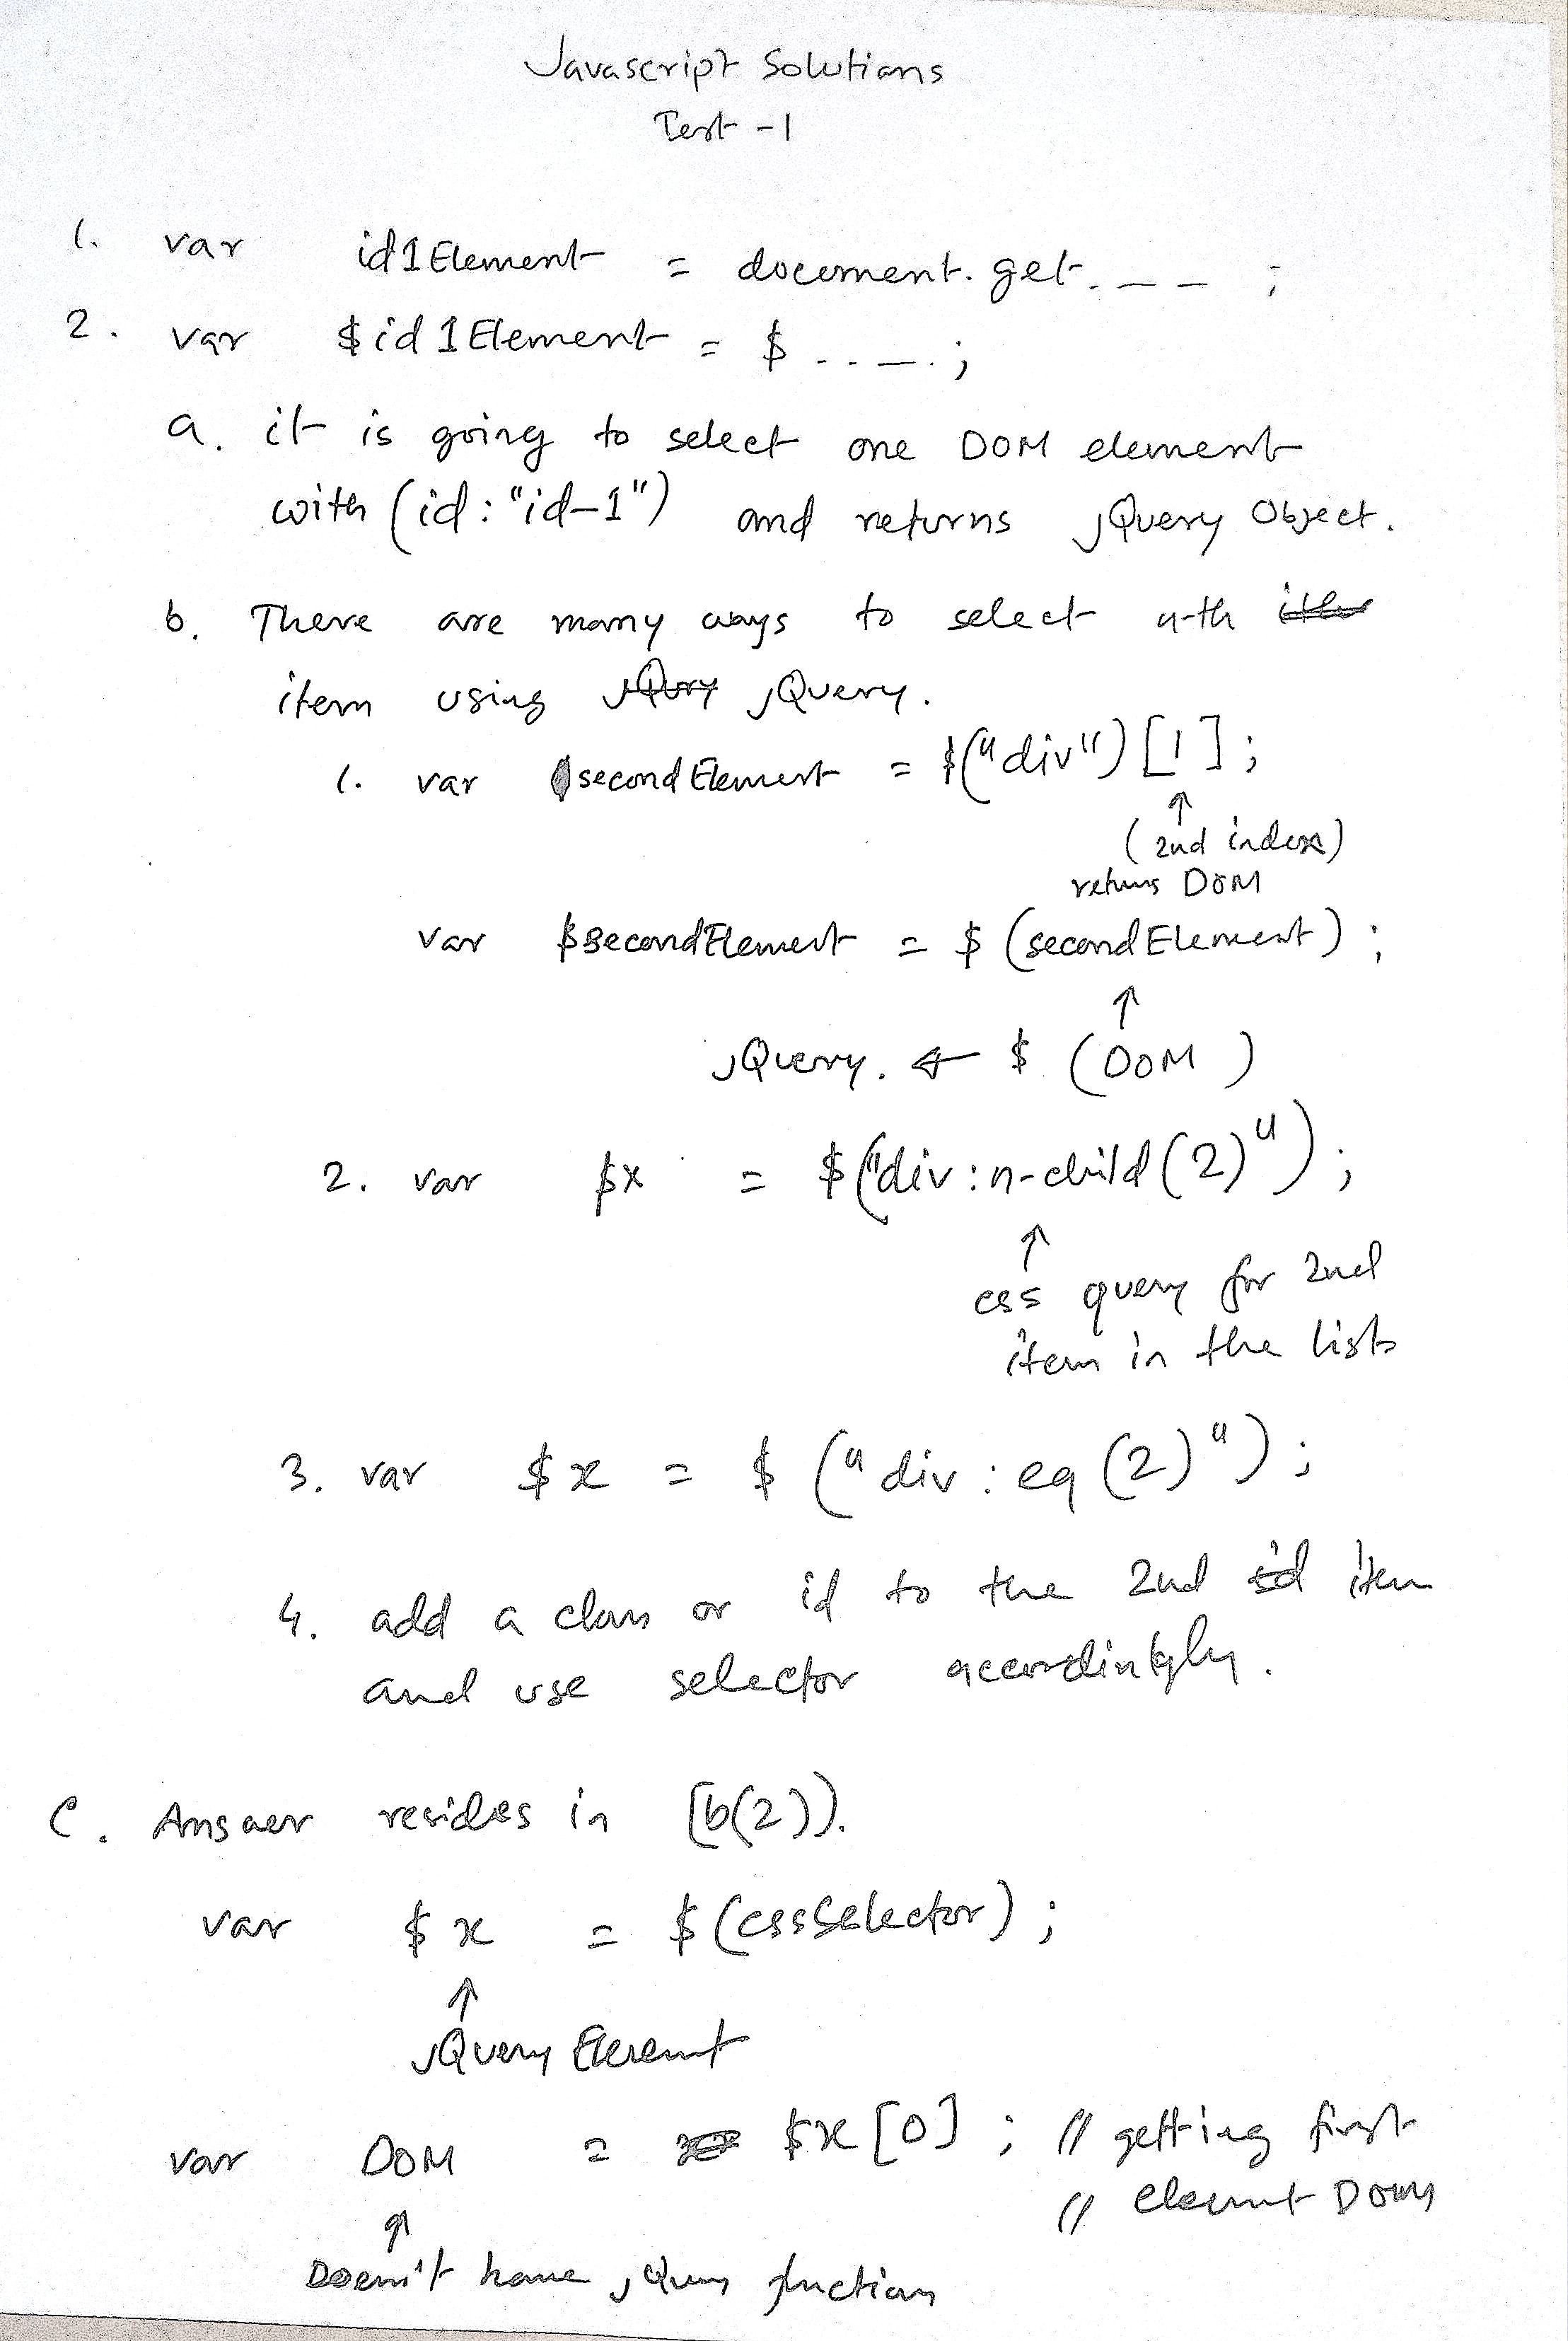 Javascript Solutions
Test -1
1. var id1Element = document.get. _ _ ;
2. var $id1Element = $ . . _ . ;
a. it is going to select one DOM element
with (id: "id-1") and returns jQuery Object.
b. There are many ways to select n-th
item using jQuery.
1. var secondElement = $("div")[1];
↑
(2nd index)
returns DOM
var $secondElement = $(secondElement);
↑
jQuery. ← $ (DOM)
2. var $x = $("div:n-child(2)");
↑
css query for 2nd
item in the list
3. var $x = $("div:eq(2)");
4. add a class or id to the 2nd item
and use selector accordingly.
C. Answer resides in [b(2)).
var $x = $(cssSelector);
↑
jQuery Element
var DOM = $x[0]; // getting first
// element DOM
↑
Doesn't have jQuery function